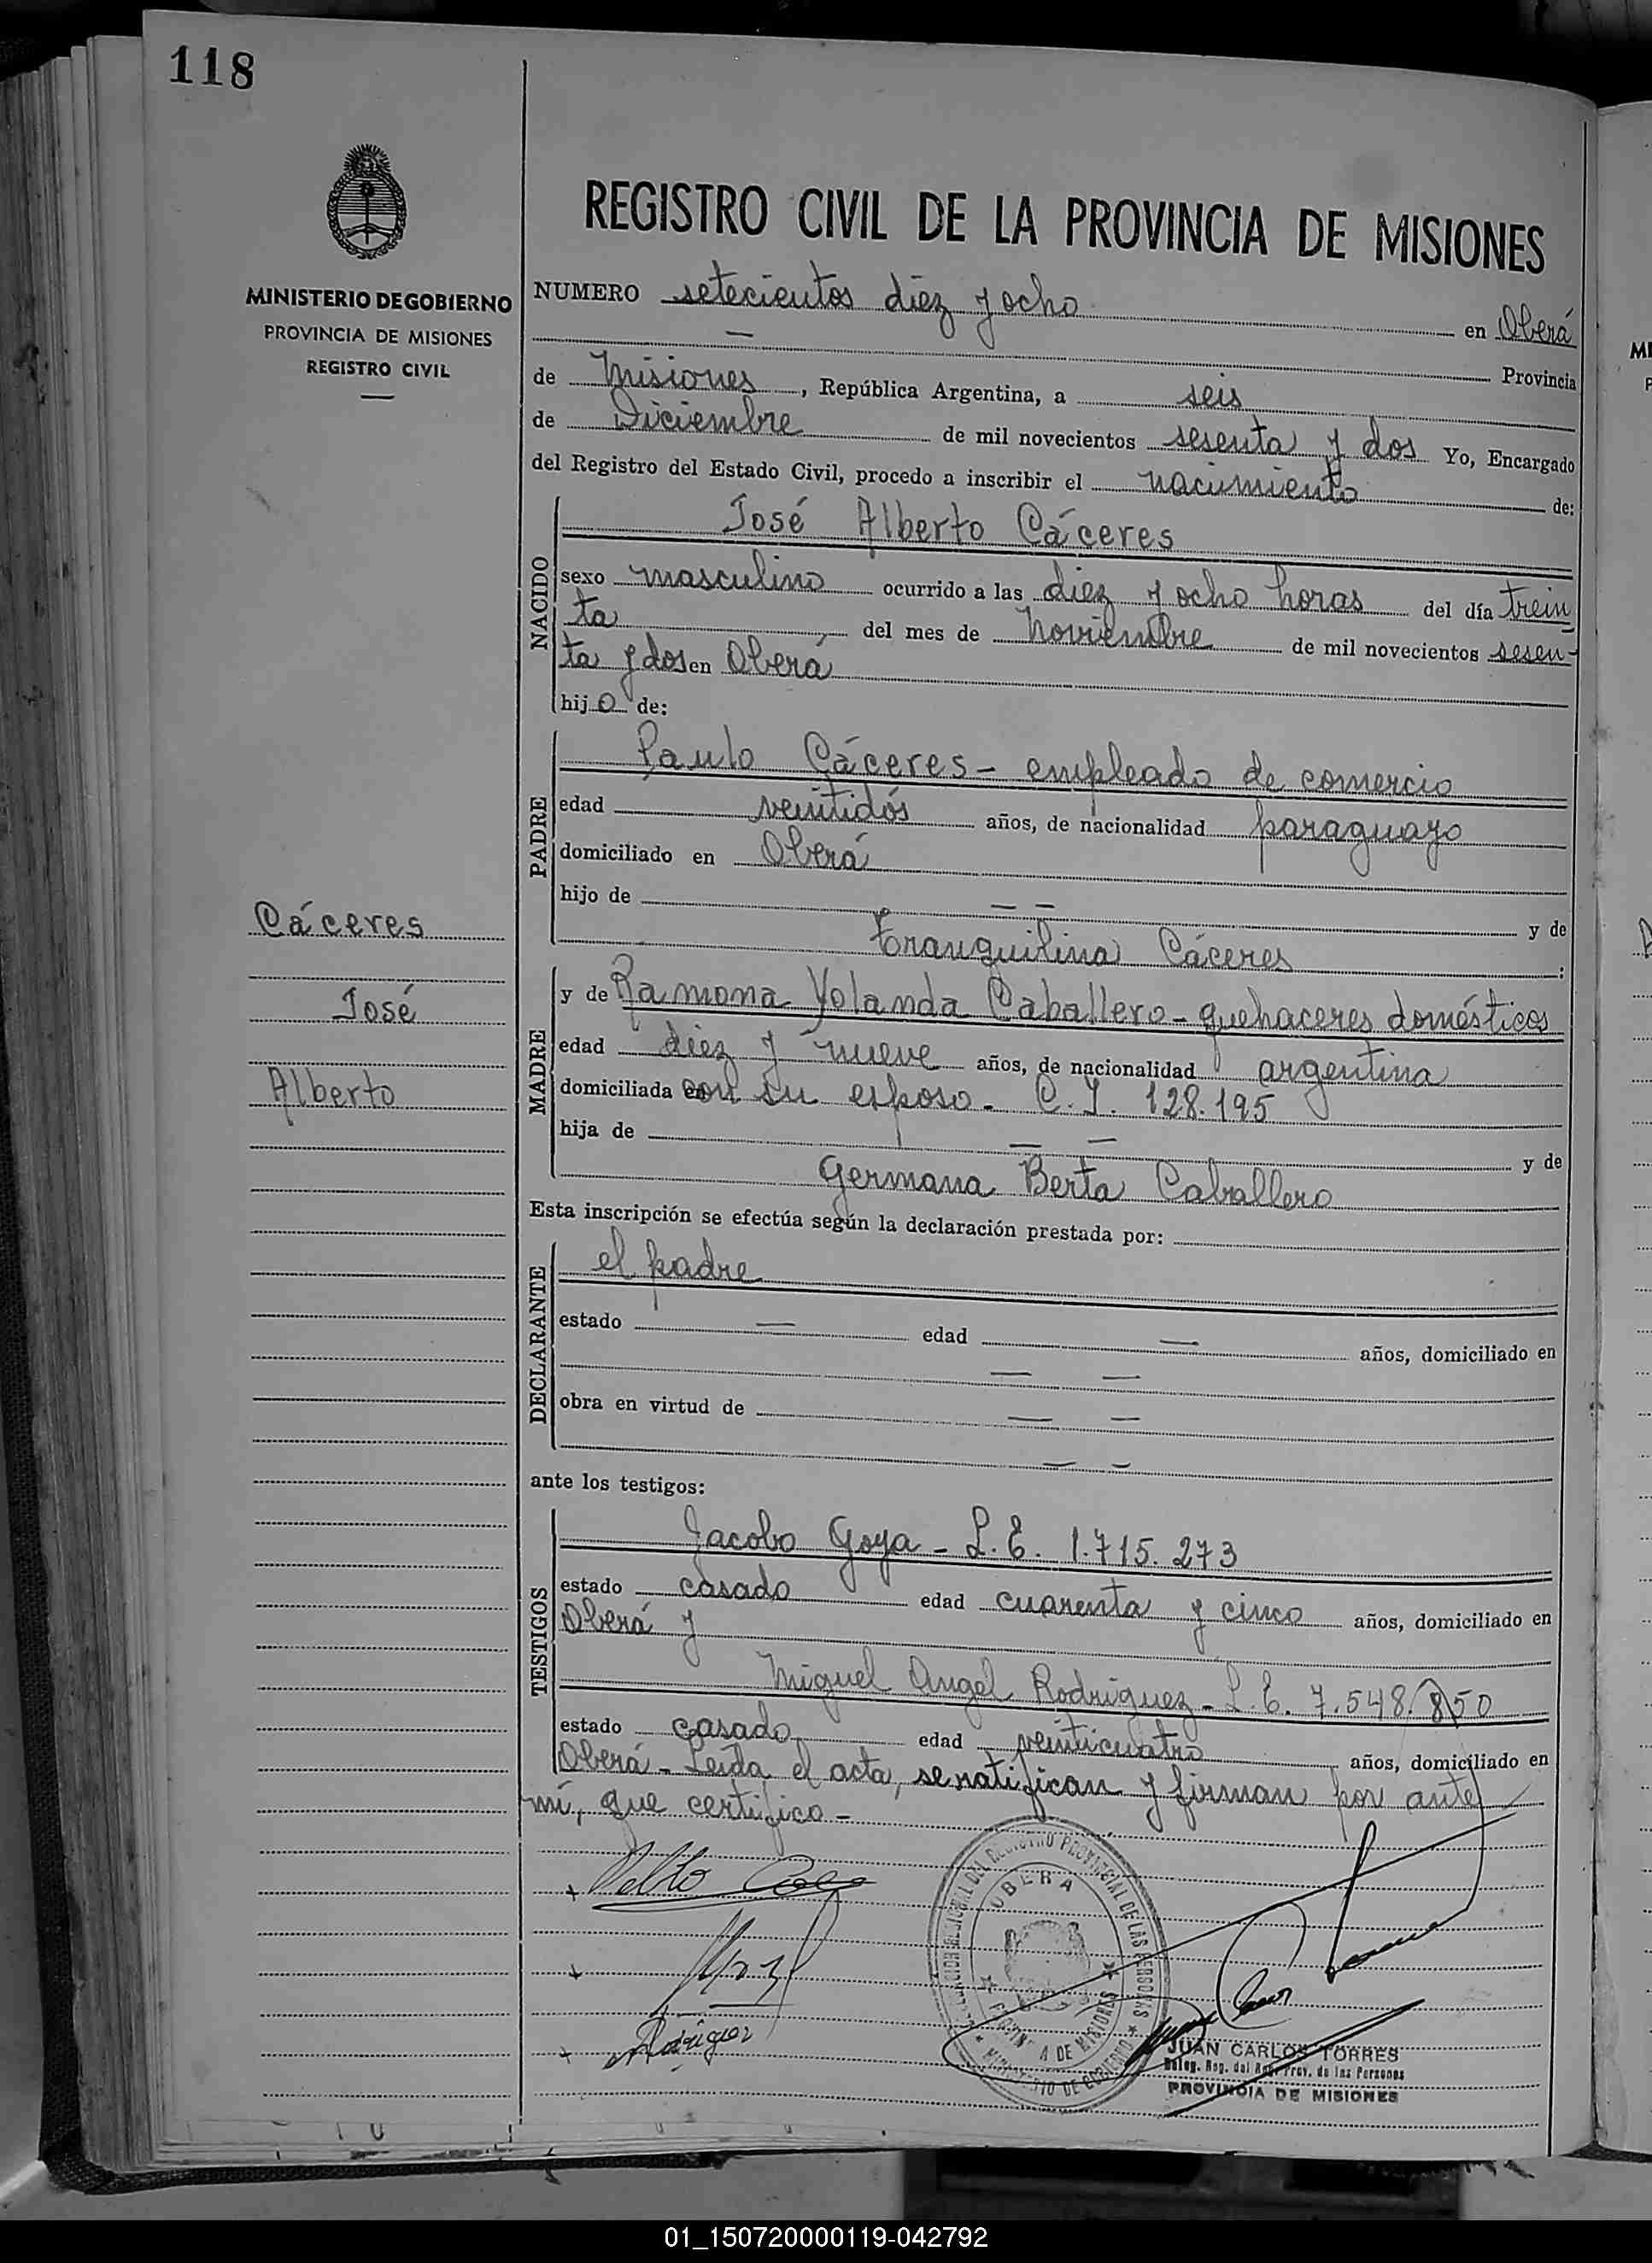 118
REGISTRO CIVIL DE LA PROVINCIA DE MISIONES
MINISTERIO DE GOBIERNO
PROVINCIA DE MISIONES
REGISTRO CIVIL
NUMERO setecientos diez y ocho en Oberá
— Provincia
de Misiones, República Argentina, a seis
de Diciembre de mil novecientos sesenta y dos Yo, Encargado
del Registro del Estado Civil, procedo a inscribir el nacimiento de:
NACIDO
José Alberto Cáceres
sexo masculino ocurrido a las diez y ocho horas del día trein
ta, del mes de Noviembre de mil novecientos sesen-
ta y dos en Oberá
hijo de:
PADRE
Paulo Cáceres - empleado de comercio
edad veintidós años, de nacionalidad paraguayo
domiciliado en Oberá
hijo de — — y de
Tranquilina Cáceres :
Cáceres
José
Alberto
MADRE
y de Ramona Yolanda Caballero - quehaceres domésticos
edad diez y nueve años, de nacionalidad argentina
domiciliada con su esposo - C.I. 128.195
hija de — — y de
Germana Berta Caballero
Esta inscripción se efectúa según la declaración prestada por:
DECLARANTE
el padre
estado — edad — años, domiciliado en
— —
obra en virtud de — —
— —
ante los testigos:
TESTIGOS
Jacobo Goya - L.E. 1.715.273
estado casado edad cuarenta y cinco años, domiciliado en
Oberá y
Miguel Angel Rodriguez - L.E. 7.548.850
estado casado edad veinticuatro años, domiciliado en
Oberá - Leída el acta, se ratifican y firman por ante
mí, que certifico -
OBERA
PROVINCIA DE MISIONES
MINISTERIO DE GOBIERNO
Rodriguez
JUAN CARLOS TORRES
Deleg. Reg. del Reg. Prov. de las Personas
PROVINCIA DE MISIONES
01_150720000119-042792